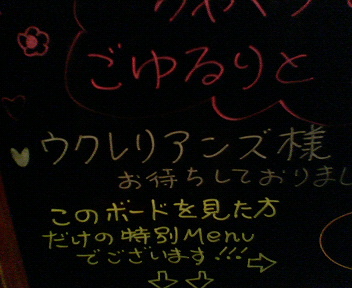 ごゆるりと
ウクレリアンズ様
お待ちしておりまし
このボードを見た方
だけの特別Menu
でございます!!!⇨
⇩ ⇩